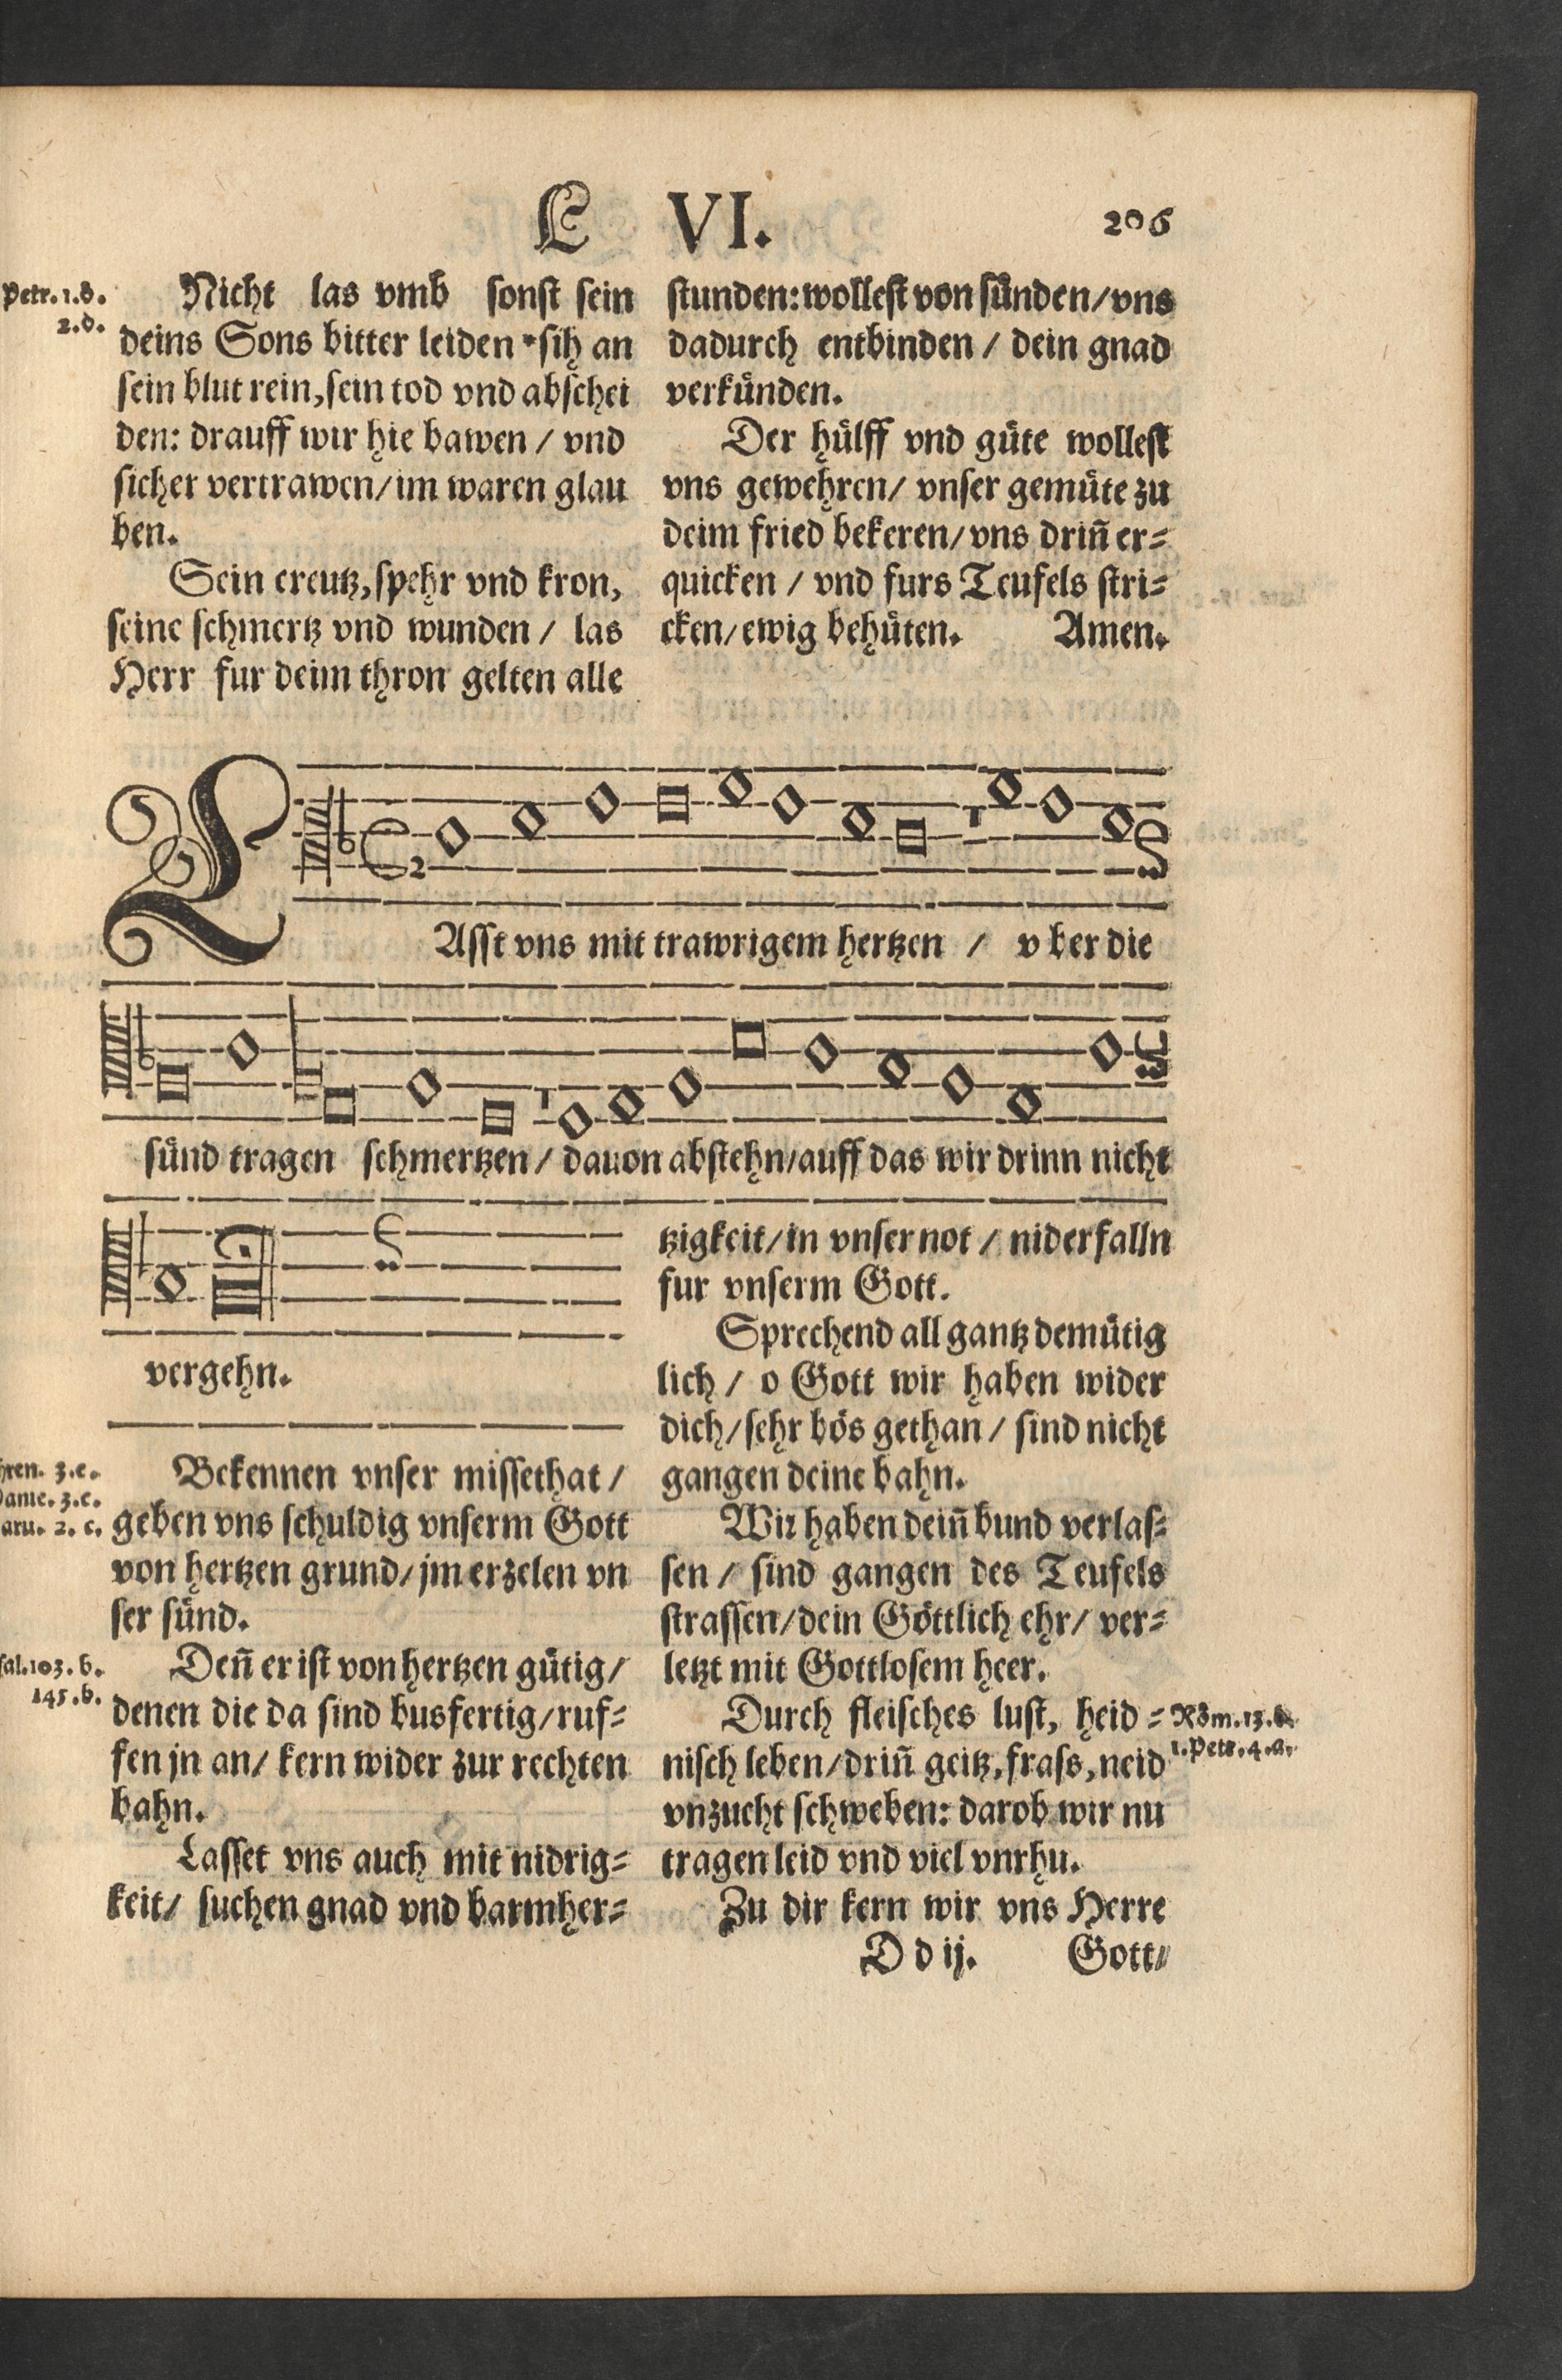 L VI. 206
Petr. 1. d.
2. d.
Nicht las vmb sonst sein
deins Sons bitter leiden * sih an
sein blut rein, sein tod vnd abschei
den: drauff wir hie bawen / vnd
sicher vertrawen/ im waren glau
ben.
Sein creutz, spehr vnd kron,
seine schmertz vnd wunden / las
Herr fur deim thron gelten alle
stunden: wollest von sünden/ vns
dadurch entbinden / dein gnad
verkünden.
Der hülff vnd güte wollest
vns gewehren/ vnser gemüte zu
deim fried bekeren/ vns driñ er=
quicken / vnd furs Teufels stri=
cken/ ewig behüten. Amen.
LAsst vns mit trawrigem hertzen / v ber die
sünd tragen schmertzen / dauon abstehn/ auff das wir drinn nicht
vergehn.
hren. 3. e.
Danie. 3. c.
aru. 2. c.
Bekennen vnser missethat /
geben vns schuldig vnserm Gott
von hertzen grund/ jm erzelen vn
ser sünd.
sal. 103. b.
145. b.
Deñ er ist von hertzen gütig/
denen die da sind busfertig/ ruf=
fen jn an/ kern wider zur rechten
bahn.
Lasset vns auch mit nidrig=
keit/ suchen gnad vnd barmher=
tzigkeit/ in vnser not / niderfalln
fur vnserm Gott.
Sprechend all gantz demütig
lich / o Gott wir haben wider
dich/ sehr bös gethan / sind nicht
gangen deine bahn.
Wir haben deiñ bund verlas=
sen / sind gangen des Teufels
strassen/ dein Göttlich ehr/ ver=
letzt mit Gottlosem heer.
Durch fleisches lust, heid =
nisch leben/ driñ geitz, frass, neid
vnzucht schweben: darob wir nu
tragen leid vnd viel vnrhu.
Röm. 13. b.
1. Petr. 4. a.
Zu dir kern wir vns Herre
D d ij. Gott/